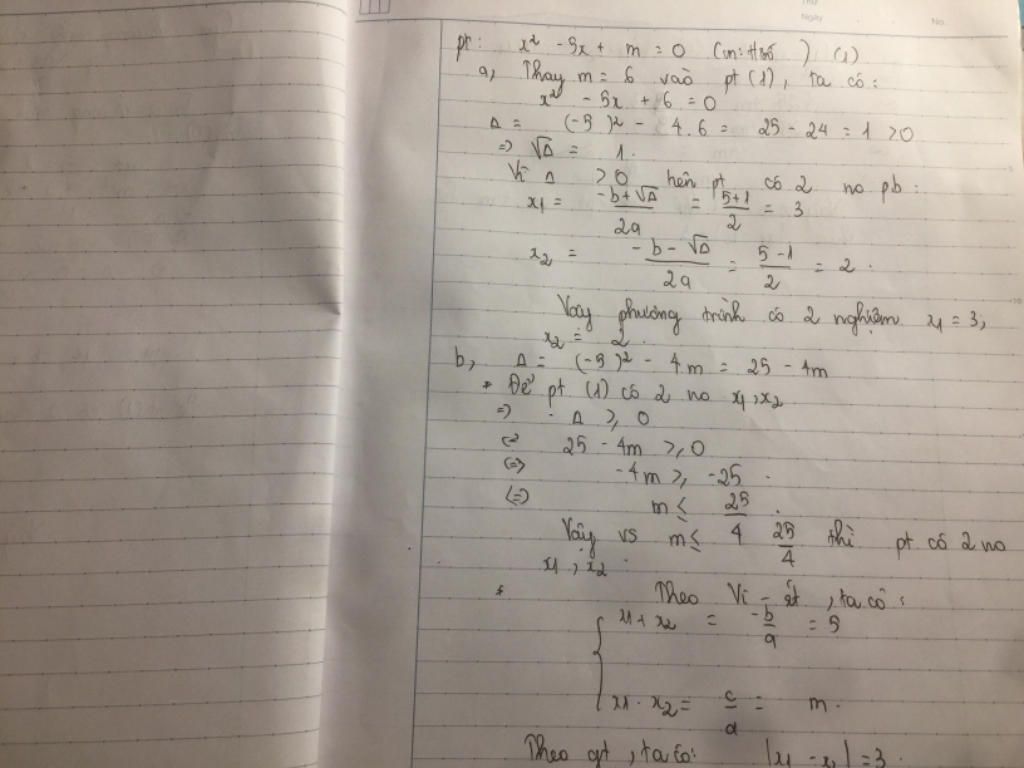 Thứ
Ngày
No.
pt: x² - 5x + m = 0 (m: t/số) (1)
a, Thay m = 6 vào pt (1), ta có:
x² - 5x + 6 = 0
Δ = (-5)² - 4.6 = 25 - 24 = 1 > 0
=> √Δ = 1.
Vì Δ > 0 nên pt có 2 no pb:
x₁ = (-b+√Δ)/2a = (5+1)/2 = 3
x₂ = (-b-√Δ)/2a = (5-1)/2 = 2.
Vậy phương trình có 2 nghiệm x₁ = 3;
x₂ = 2.
b, Δ = (-5)² - 4m = 25 - 4m
* Để pt (1) có 2 no x₁, x₂
=> Δ ≥ 0
<=> 25 - 4m ≥ 0
<=> -4m ≥ -25.
<=> m ≤ 25/4.
Vậy vs m ≤ 4 25/4 thì pt có 2 no
x₁; x₂.
* Theo Vi-ét, ta có:
x₁ + x₂ = -b/a = 5
x₁ . x₂ = c/a = m.
Theo gt, ta có: |x₁ - x₂| = 3